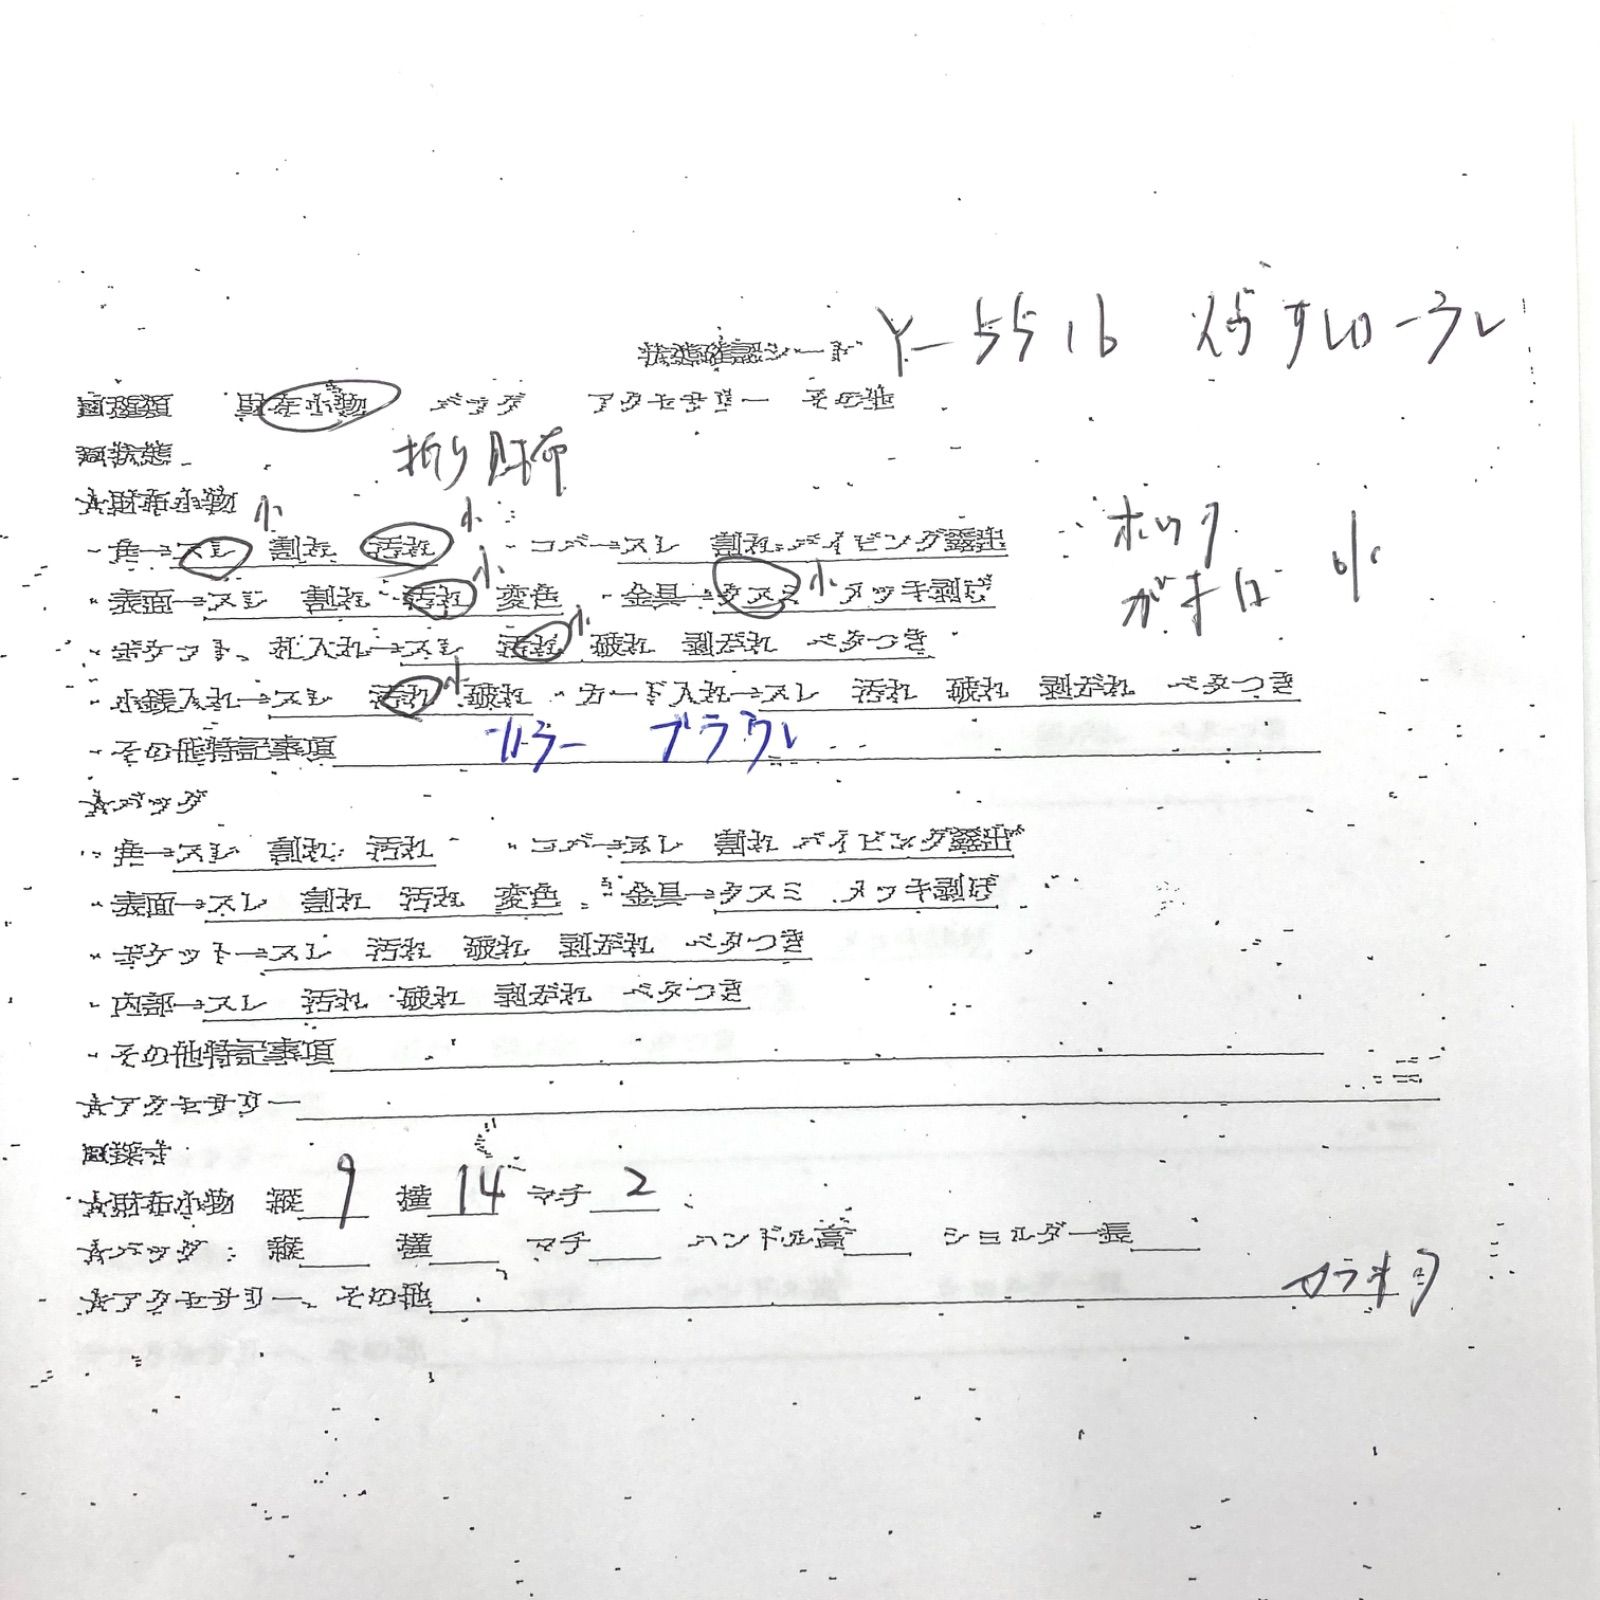 状態確認シート Y-5516 イヴサンローラン
□種類 財布小物 バッグ アクセサリー その他
□状態 折り財布
☆財布小物
・角→スレ 小 割れ 汚れ 小 ・コバ→スレ 割れ パイピング露出 ホック
・表面→スレ 割れ 汚れ 小 変色 ・金具→クスミ 小 メッキ剥げ がま口 小
・ポケット、札入れ→スレ 汚れ 小 破れ 剥がれ ベタつき
・小銭入れ→スレ 汚れ 小 破れ ・カード入れ→スレ 汚れ 破れ 剥がれ ベタつき
・その他特記事項 カラー ブラウン
☆バッグ
・角→スレ 割れ 汚れ ・コバ→スレ 割れ パイピング露出
・表面→スレ 割れ 汚れ 変色 ・金具→クスミ メッキ剥げ
・ポケット→スレ 汚れ 破れ 剥がれ ベタつき
・内部→スレ 汚れ 破れ 剥がれ ベタつき
・その他特記事項
☆アクセサリー
□採寸
☆財布小物 縦 9 横 14 マチ 2
☆バッグ 縦 横 マチ ハンドル高 ショルダー長
☆アクセサリー、その他